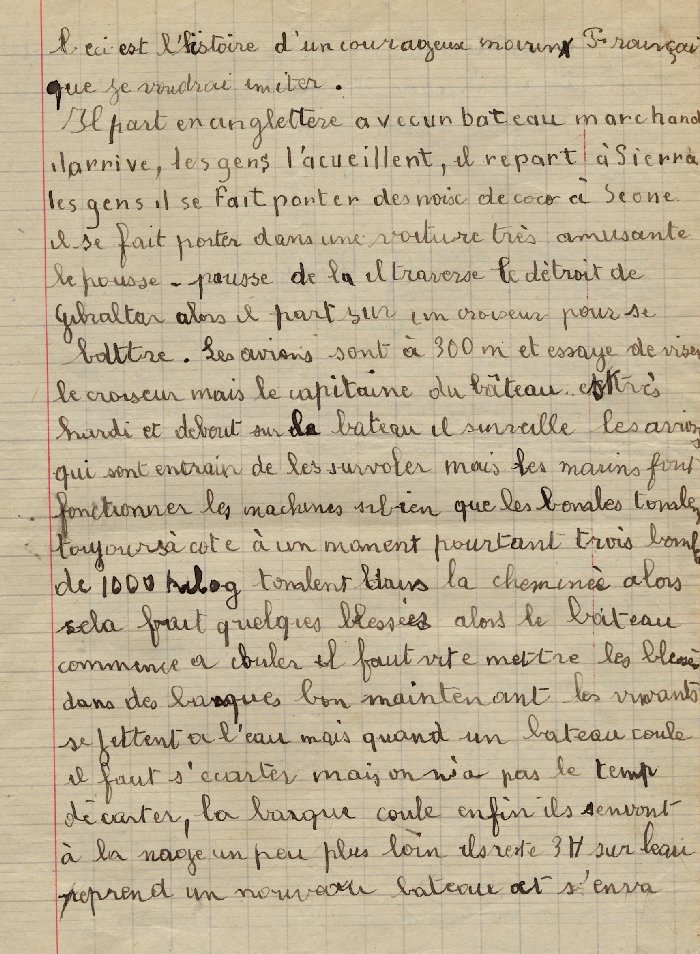 Ceci est l'histoire d'un courageux marin Françai
que je voudrai imiter.
Il part en anglettere avec un bateau marchand
il arrive, les gens l'acueillent, il repart à Sierra
les gens il se fait porter des noix de coco à Seone
il se fait porter dans une voiture très amusante
le pousse-pousse de la il traverse le détroit de
Gibraltar alors il part sur un croiseur pour se
battre. Les avions sont à 300 m et essaye de viser
le croiseur mais le capitaine du bâteau est très
hardi et debout sur le bateau il surveille les avions
qui sont entrain de les survoler mais les marins font
fonctionner les machines si bien que les bombes tombe
toujours à cote à un moment pourtant trois bombe
de 1000 kilog tombent dans la cheminée alors
sela fait quelques blessées alors le bâteau
commence a couler il faut vite mettre les blessé
dans des barques bon maintenant les vivants
se jettent a l'eau mais quand un bateau coule
il faut s'ecarter mais on n'a pas le temp
décarter, la barque coule enfin ils senvont
à la nage un peu plus loin ils reste 3H sur leau
reprend un nouveau bateau et s'enva